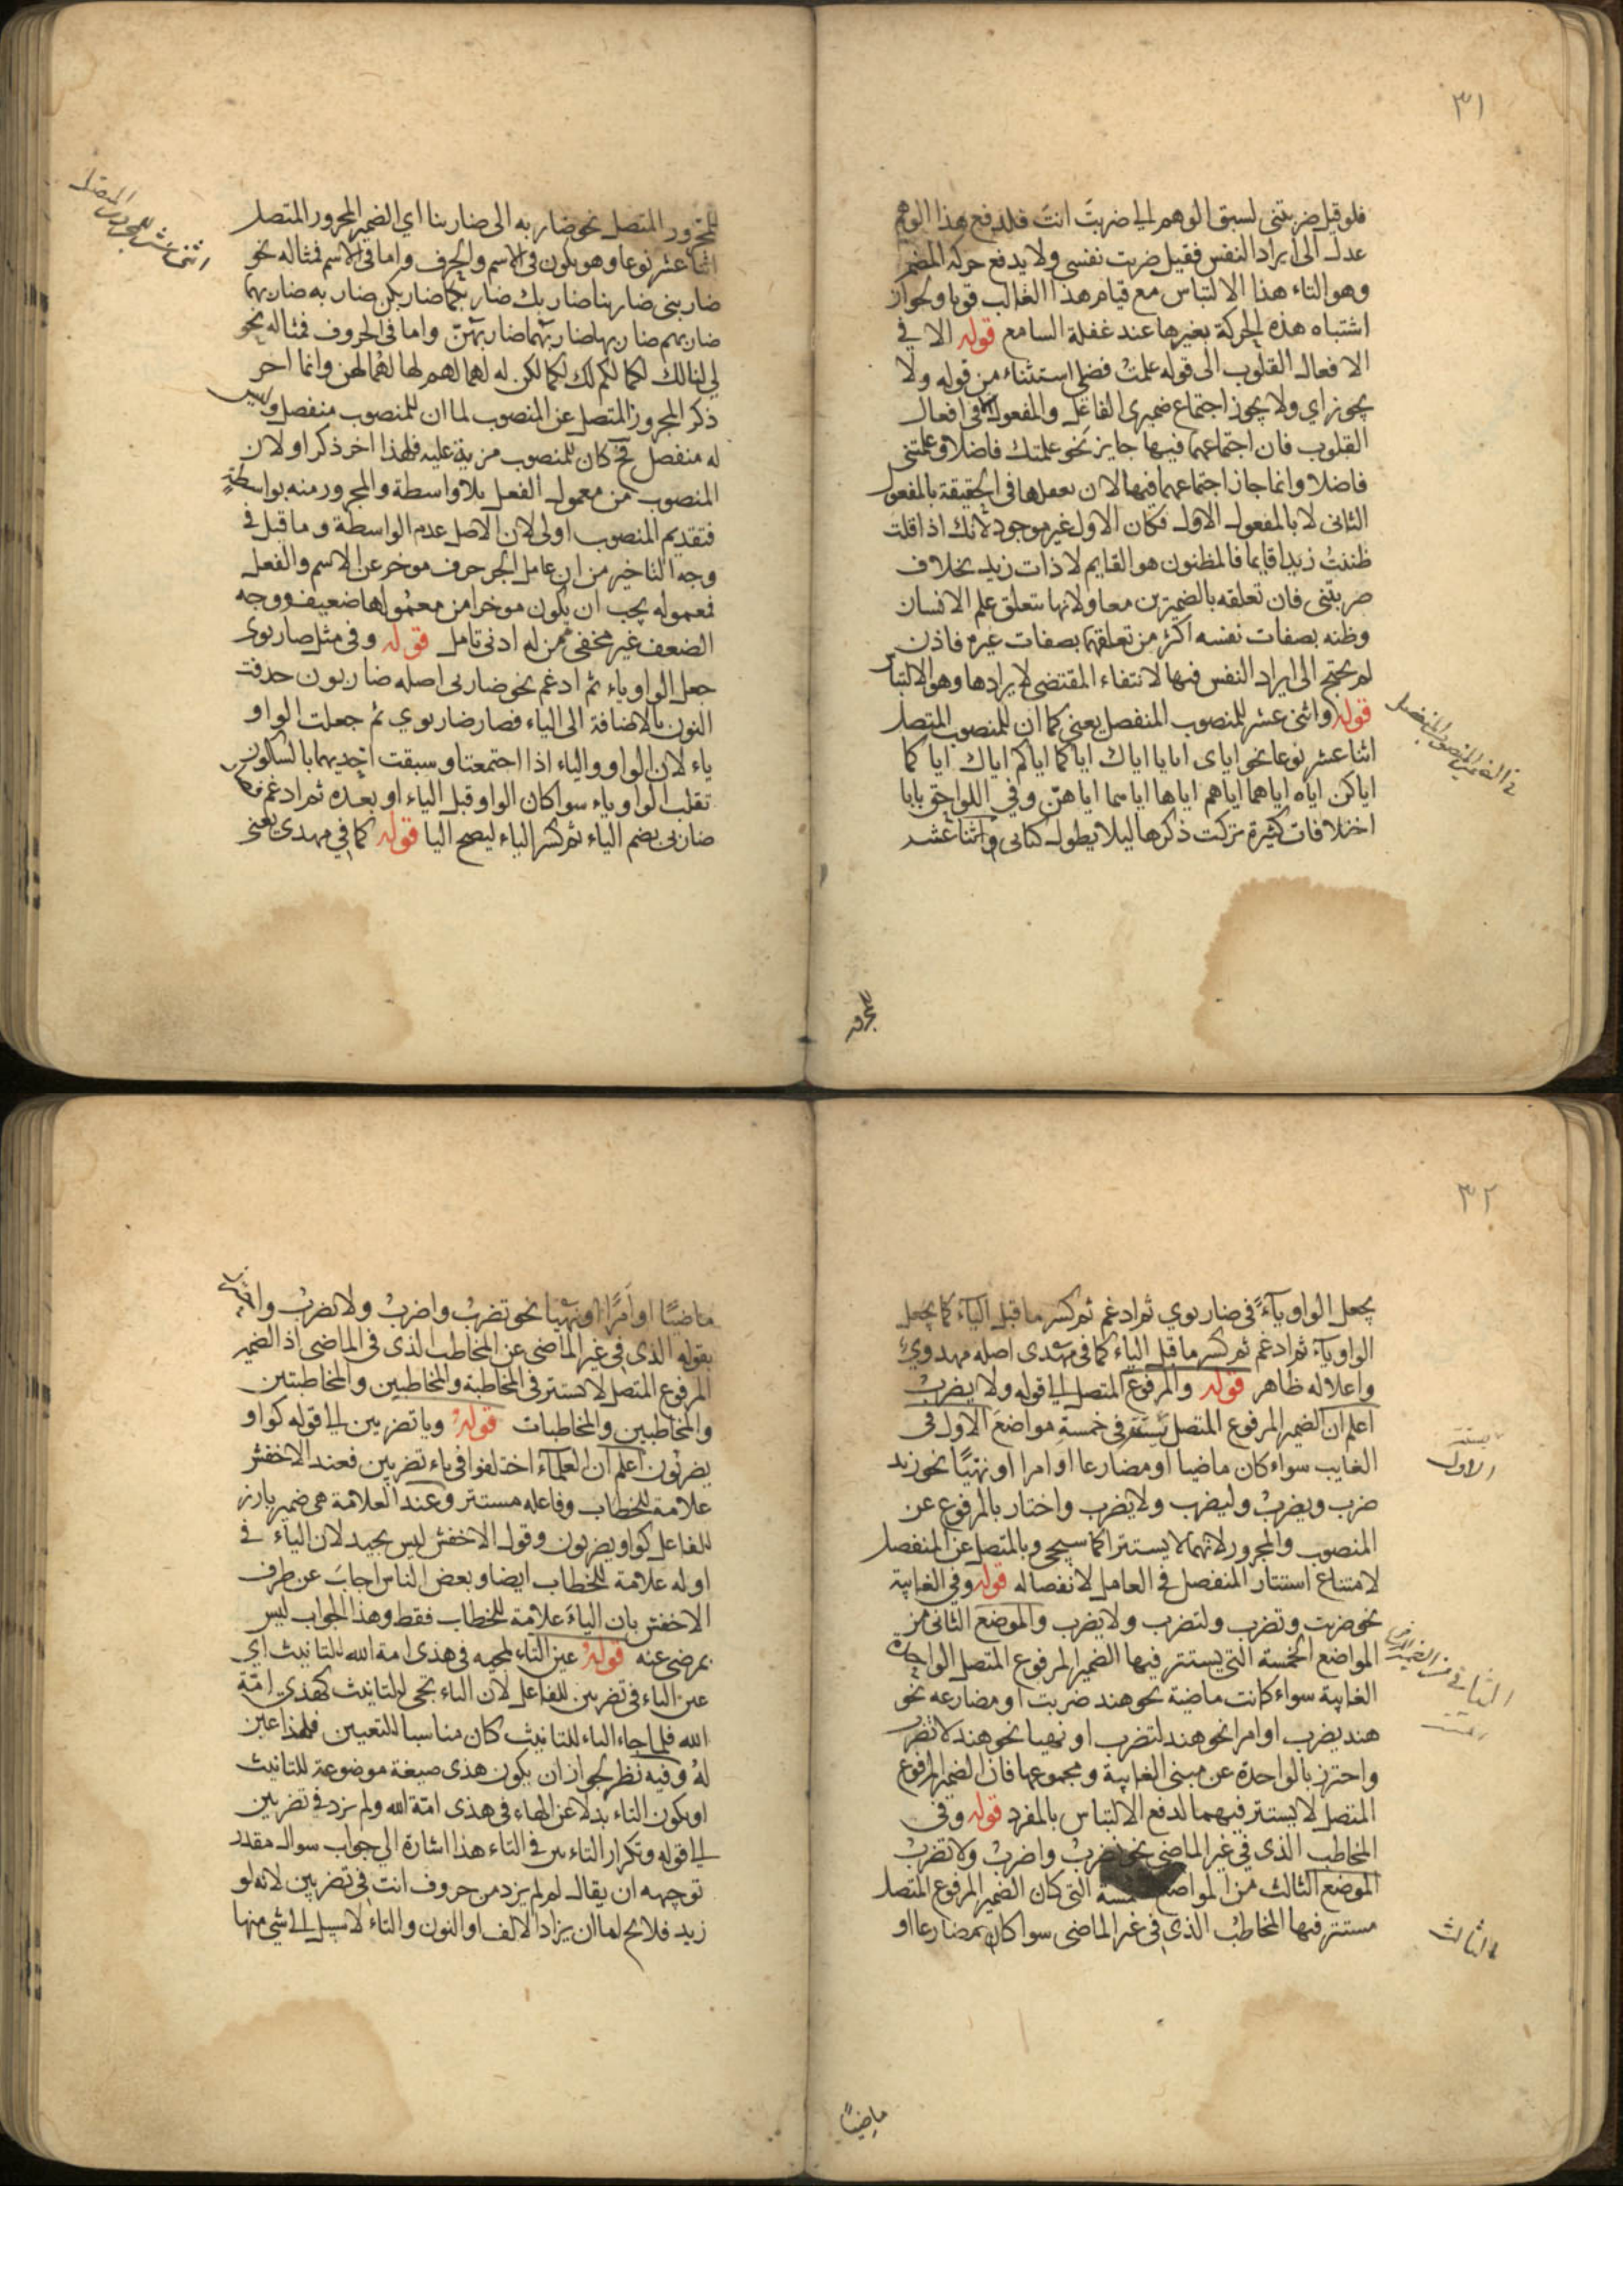 ٣١
فلو قيل ضربتنى لسبق الوهم الى ضربتَ انتَ فلدفع هذا الوهم
عدل الى ايراد النفس فقيل ضربت نفسى ولا يدفع حركة المضمر
وهو التاء هذا الالتباس مع قيام هذا الغالب قويا ولجواز
اشتباه هذه الحركة بغيرها عند غفلة السامع قوله الا فى
الافعال القلوب الى قوله علمتُ فضلى استثناء من قوله ولا
يجوز اي ولا يجوز اجتماع ضميرى الفاعل والمفعول الا فى افعال
القلوب فان اجتماعهما فيها جايز نحو علمتك فاضلا وعلمتنى
فاضلا وانما جاز اجتماعهما فيها لان تعلقها فى الحقيقة بالمفعول
الثانى لا بالمفعول الاول فكان الاول غير موجود لانك اذا قلت
ظننتُ زيدا قايما فالمظنون هو القايم لا ذات زيد بخلاف
ضربتنى فان تعلقه بالضميرين معا ولانها تتعلق علم الانسان
وظنه بصفات نفسه اكثر من تعلقهما بصفات غيره فاذن
لم يحتج الى ايراد النفس فيها لانتفاء المقتضى لايرادها وهو الالتباس
قوله واثنى عشر للمنصوب المنفصل يعنى كما ان للمنصوب المتصل
اثنا عشر نوعا نحو اياى ايانا اياك اياكما اياكم اياك اياكما
اياكن اياه اياهما اياهم اياها اياهما اياهنّ وفى اللواحق بايا
اختلافات كثيرة تركت ذكرها ليلا يطول كتابى واثنا عشر
للمجرور
للمجرور المتصل نحو ضاربه الى ضاربنا اي الضمير المجرور المتصل
اثنا عشر نوعا وهو يكون فى الاسم والحرف واما فى الاسم فمثاله نحو
ضاربنى ضاربنا ضاربك ضاربكما ضاربكن ضاربه ضاربهما
ضاربهم ضاربها ضاربهما ضاربهنّ واما فى الحروف فمثاله نحو
لى لنا لك لكما لكم لك لكما لكن له لهما لهم لها لهما لهن وانما اخر
ذكر المجرور المتصل عن المنصوب لما ان للمنصوب منفصل وليس
له منفصل فح كان للمنصوب مزية عليه فلهذا اخر ذكرا ولان
المنصوب من معمول الفعل بلا واسطة والمجرور منه بواسطةٍ
فتقديم المنصوب اولى لان الاصل عدم الواسطة وما قيل فى
وجه التاخير من ان عامل الجر حرف موخر عن الاسم والفعل
فمعموله يجب ان يكون موخرا من معمولها ضعيف ووجه
الضعف غير مخفى ممن له ادنى تامل قوله وفى مثل ضاربوى
جعل الواو ياء ثم ادغم نحو ضاربى اصله ضاربون حذفت
النون بالاضافة الى الياء فصار ضاربوي ثم جعلت الواو
ياء لان الواو والياء اذا اجتمعتا وسبقت احديهما بالسكون
تقلب الواو ياء سوا كان الواو قبل الياء او بعده ثم ادغم فصار
ضاربى بضم الياء ثم كسر الياء ليصح اليا قوله كما فى مهدى يعنى
اثنى عشر للمجرور المتصل
٣٢
يجعل الواو ياءً فى ضاربوي ثم ادغم ثم كسر ما قبل الياء كما يجعل
الواو ياء ثم ادغم ثم كسر ما قبل الياء كما فى مهدى اصله مهدوي
واعلاله ظاهر قوله والمرفوع المتصل الى قوله ولا يضربُ
اعلم ان الضمير المرفوع المتصل يستتر فى خمسةِ مواضعَ الاول فى
الغايب سواء كان ماضيا او مضارعا او امرا او نهيًا نحو زيد
ضرب ويضربُ وليضرب ولا يضرب واختار بالمرفوع عن
المنصوب والمجرور لانهما لا يستترا كما سيجى وبالمتصل عن المنفصل
لامتناع استتار المنفصل فى العامل لانفصاله قوله وفى الغايبة
نحو ضربت وتضرب ولتضرب ولا يضرب والموضع الثانى من
المواضع الخمسة التى يستتر فيها الضمير المرفوع المتصل الواحدة
الغايبة سواء كانت ماضية نحو هند ضربت او مضارعه نحو
هند يضرب او امرا نحو هند لتضرب او نهيا نحو هند لا تضرب
واحترز بالواحدة عن مبنى الغايبة ومجموعها فان الضمير المرفوع
المتصل لا يستتر فيهما لدفع الالتباس بالمفرد قوله وفى
المخاطب الذى فى غير الماضى نحو تضربُ واضربُ ولا تضربُ
الموضع الثالث من المواضع الخمسة التى كان الضمير المرفوع المتصل
مستتر فيها المخاطب الذي فى غير الماضى سوا كان مضارعا او
الاول
الثالث
ماضيًا
ماضيًا او امرًا او نهيًا نحو تضربُ واضربُ ولا تضربُ واحترز
بقوله الذى فى غير الماضى عن المخاطب الذى فى الماضى اذ الضمير
المرفوع المتصل لا يستتر فى المخاطبة والمخاطبين والمخاطبتين
والمخاطبين والمخاطبات قوله ويا تضربين الى قوله كواو
يضربون اعلم ان العلماء اختلفوا فى ياء تضربين فعند الاخفش
علامة للخطاب وفاعله مستتر وعند العلامة هى ضمير بارز
للفاعل كواو يضربون وقول الاخفش ليس بجيد لان الياء فى
اوله علامة للخطاب ايضا وبعض الناس اجابَ عن طرف
الاخفش بان الياءَ علامة للخطاب فقط وهذا الجواب ليس
بمرضى عنه قوله عين التاء لمجيه فى هذى امة الله للتانيث اي
عين الياء فى تضربين للفاعل لان الياء تجى للتانيث كهذي امّة
الله فلما جاء الياء للتانيث كان مناسبا للتعيين فلهذا عين
لهُ وفيه نظر لجواز ان يكون هذى صيغة موضوعة للتانيث
او يكون التاء بدلا عن الهاء فى هذى امّة الله ولم يزد فى تضربين
الى قوله وتكرار التاءين فى التاء هذا اشارة الى جواب سوال مقدر
توجيهه ان يقال لم لم يزد من حروف انت فى تضربين لانه لو
زيد فلا يح اما ان يزاد الالف او النون والتاء لا سبيل الى شى منها